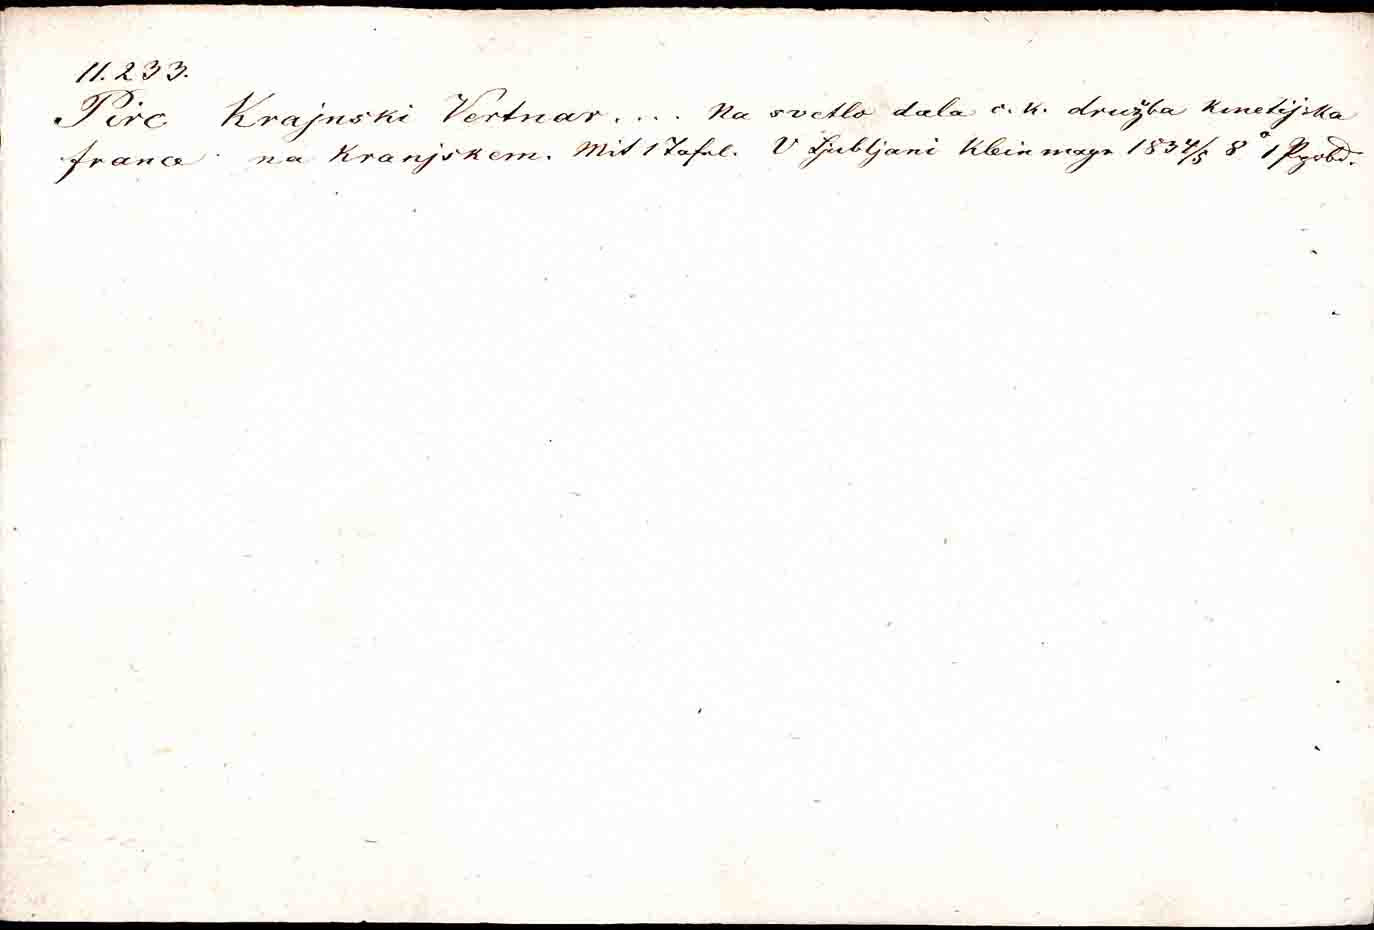 11.233.
Pirc Krajnski Vertnar.... Na svetlo dala c. k. družba kmetijska
france na Kranjskem. Mit 1 Tafel. V Ljubljani Kleinmayr 1834/5 8° 1 Ppbd.